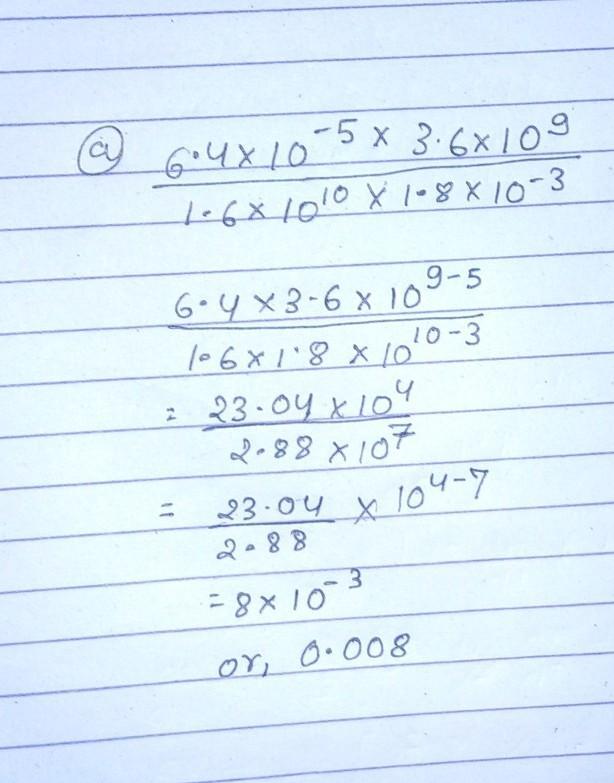 ⓐ 6.4×10⁻⁵ × 3.6×10⁹
1.6×10¹⁰ × 1.8×10⁻³
6.4×3.6×10⁹⁻⁵
1.6×1.8×10¹⁰⁻³
= 23.04×10⁴
2.88×10⁷
= 23.04 × 10⁴⁻⁷
2.88
=8×10⁻³
or, 0.008